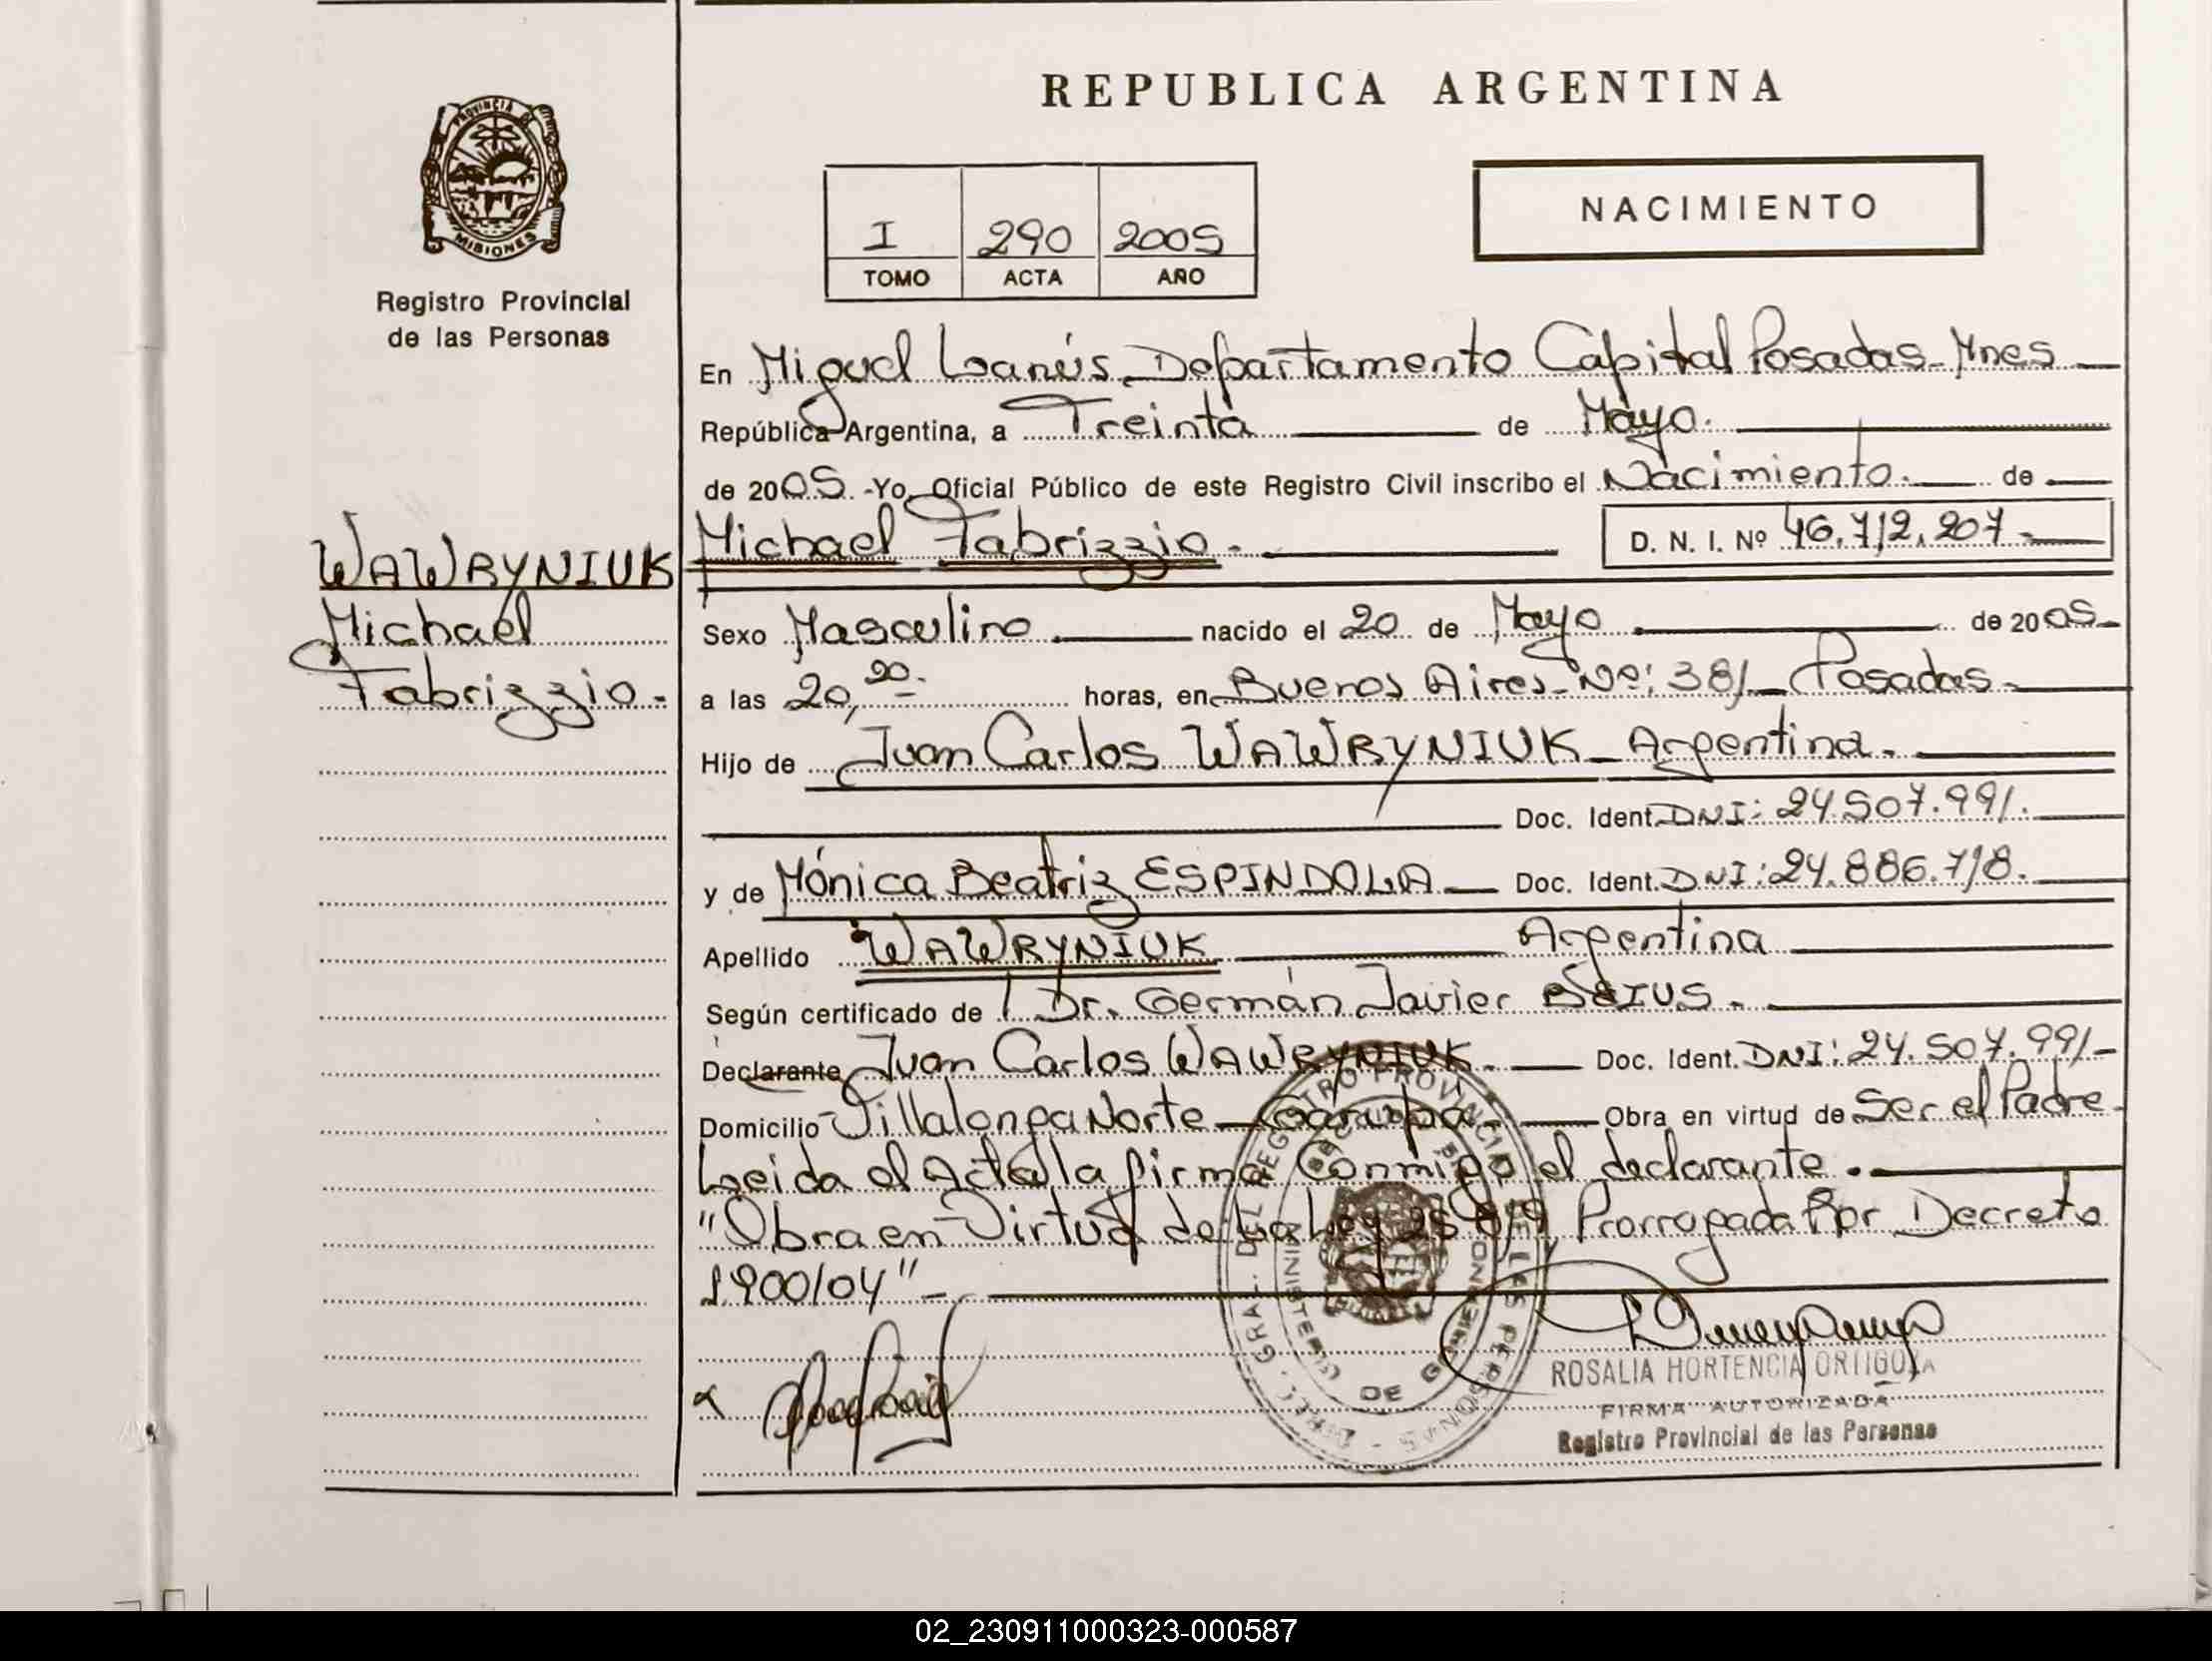 REPUBLICA ARGENTINA
PROVINCIA DE
MISIONES
Registro Provincial
de las Personas
I 290 2005
TOMO ACTA AÑO
NACIMIENTO
En Miguel Lanús Departamento Capital Posadas-Mnes
República Argentina, a Treinta de Mayo.
de 2005.-Yo, Oficial Público de este Registro Civil inscribo el Nacimiento. de
WAWRYNIUK
Michael
Fabrizzio.-
Michael Fabrizzio.-
D. N. I. Nº 46.712.207-
Sexo Masculino nacido el 20 de Mayo de 2005-
a las 20,20.- horas, en Buenos Aires-Nº: 381-Posadas-
Hijo de Juan Carlos WAWRYNIUK-Argentina.-
Doc. Ident. DNI: 24.507.991.
y de Mónica Beatriz ESPINDOLA- Doc. Ident. DNI: 24.886.718.
Apellido WAWRYNIUK Argentina
Según certificado de Dr. Germán Javier
Declarante Juan Carlos WAWRYNIUK.- Doc. Ident. DNI: 24.507.991-
Domicilio Villalonga Norte-Garupa.- Obra en virtud de Ser el Padre.
Leida el Acta la firma Conmigo el declarante.
"Obra en Virtud de La Ley 25.819 Prorrogada Por Decreto
1.900/04"-
ROSALIA HORTENCIA ORTIGOZA
FIRMA AUTORIZADA
Registro Provincial de las Personas
02_230911000323-000587